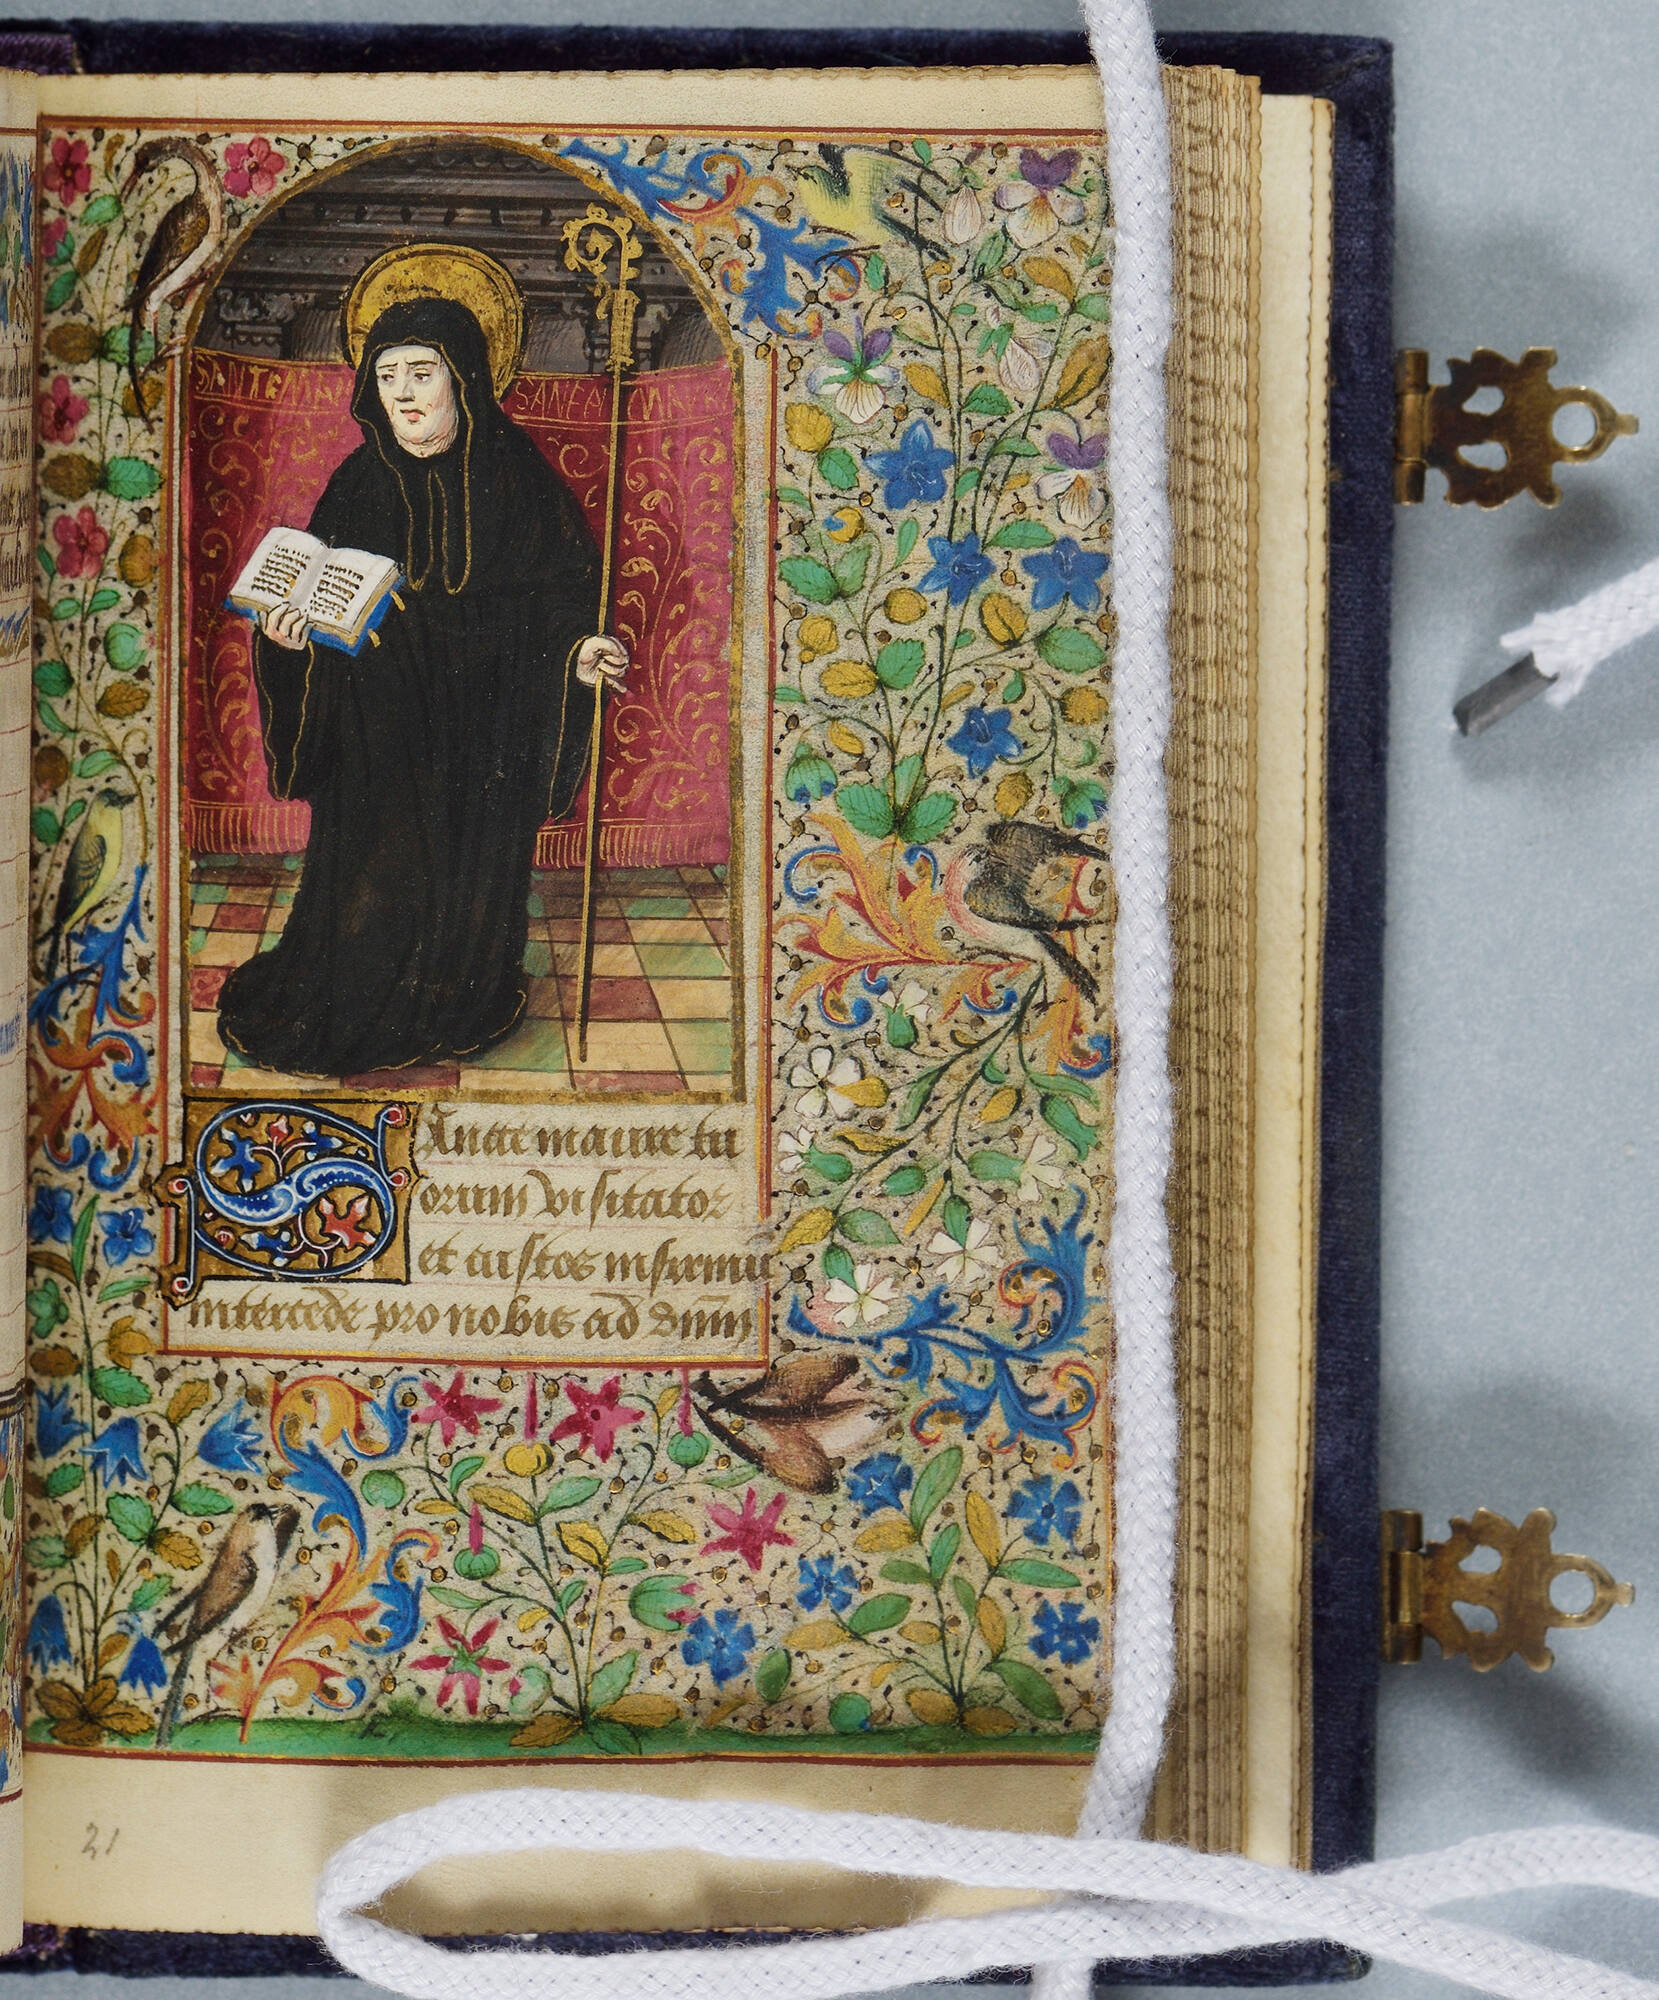 SANTE MAU
SANTA MAVR
SAncte maure tu
orum visitator
et custos infirmū
intercede pro nobis ad dn̄m
21